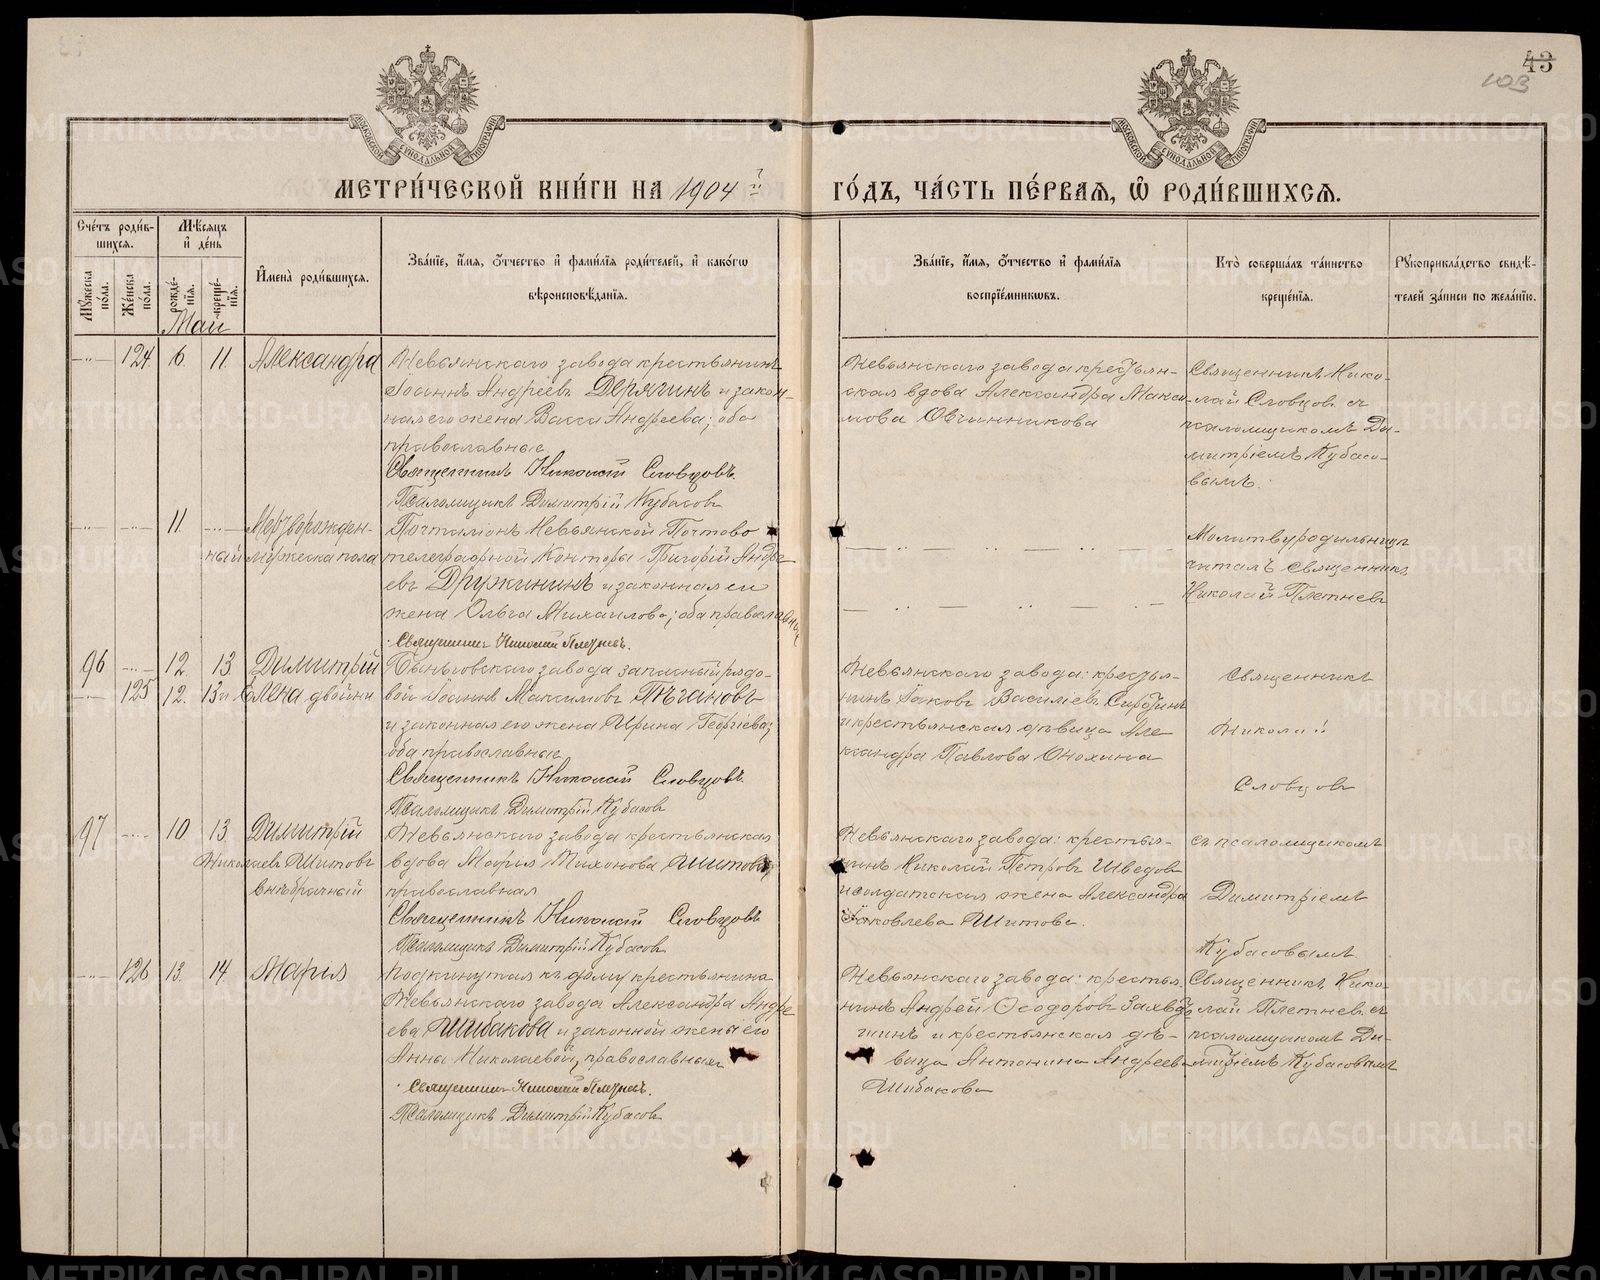 43
103
МЕТРИ́ЧЕСКОЙ КНИ́ГИ НА 1904 й ГО́ДЪ, ЧА́СТЬ ПЕ́РВАЯ, Ѿ РОДИ́ВШИХСЯ.
Сче́тъ роди́в-
шихся.
Мѣсяцъ
и де́нь
Мꙋжеска
по́ла.
Же́нска
по́ла.
рожде́-
нїя.
креще́-
нїя.
И҆мена̀ роди́вшихся.
Зва́нїе, и҆́мя, ѻ҆́тчество и҆ фами́лїя роди́телей, и҆ како́гѡ
вѣроисповѣ́данїя.
Зва́нїе, и҆́мя, ѻ҆́тчество и҆ фами́лїя
воспрїе́мникѡвъ.
Кто̀ соверша́лъ та́инство
креще́нїя.
Рꙋкоприкла́дство свидѣ́-
телей за́писи по жела́нїю.
Май
124 6. 11. Александра
Невьянскаго завода крестьянинъ
Іоаннъ Андреевъ Дерягинъ и закон-
ная его жена Васса Андреева; оба
православные
Священникъ Николай Словцовъ.
Псаломщикъ Димитрій Кубасов
Невьянскаго завода крестьян-
ская вдова Александра Макси-
мова Овчинникова
Священникъ Нико-
лай Словцов съ
псаломщикомъ Ди-
митріемъ Кубасо-
вымъ.
11 Мертворожден-
ный мужеска пола
Почталіонъ Невьянской Почтово
телеграфной Конторы Григорій Андре
евъ Дружининъ и законная его
жена Ольга Михаилова; оба православные
Священникъ Николай Плетневъ.
Молитву родильницѣ
читалъ священникъ
Николай Плетневъ
96 12. 13. Димитрій
125 12. 13 и Елена двойни
Быньговскаго завода запасный рядо-
вой Іоаннъ Максимовъ Пѣгановъ
и законная его жена Ирина Георгіева;
оба православные
Священникъ Николай Словцовъ.
Псаломщикъ Димитрій Кубасов
Невьянскаго завода: крестья-
нинъ Іаковъ Василіевъ
и крестьянская дѣвица Але
ксандра Павлова Онохина
Священникъ
Николай
Словцовъ
97 10. 13. Димитрій
Николаевъ Шитовъ
внѣбрачный
Невьянскаго завода крестьянская
вдова Марія Тихонова Шитова,
православная
Священникъ Николай Словцовъ
Псаломщикъ Димитрій Кубасов
Невьянскаго завода: крестья-
нинъ Николай Петровъ Шведов
и солдатская жена Александра
Іаковлева Шитова.
съ псаломщикомъ
Димитріемъ
Кубасовымъ
126 13. 14. Марія
Подкинутая къ дому крестьянина
Невьянскаго завода Александра Андре
ева Шибакова и законной жены его
Анны Николаевой, православныхъ
Священникъ Николай Плетневъ.
Псаломщикъ Димитрій Кубасов
Невьянскаго завода: крестья.
нинъ Андрей Ѳеодоровъ
и крестьянская дѣ-
вица Антонина Андреева
Шибакова
Священникъ Нико-
лай Плетневъ съ
псаломщикомъ Ди-
митріемъ Кубасовымъ